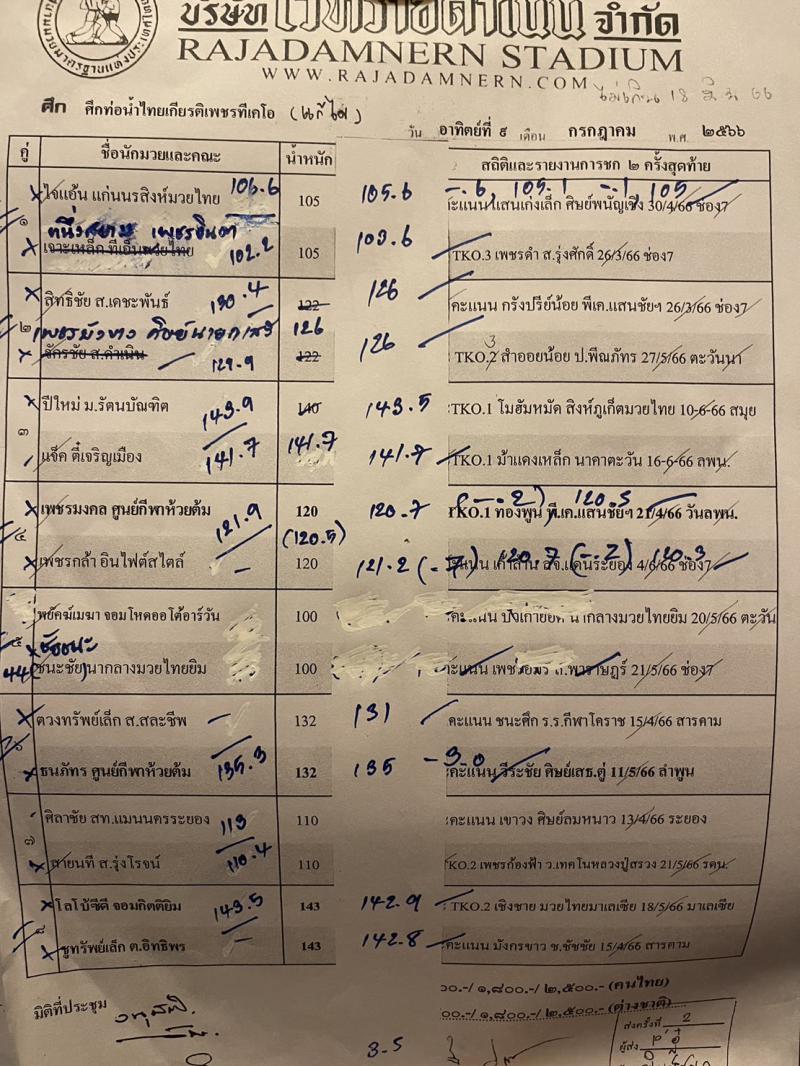 บริษัท เวทีราชดำเนิน จำกัด
RAJADAMNERN STADIUM
WWW.RAJADAMNERN.COM
ไม่เกิน 18 มี.ค 66
ศึก ศึกท่อน้ำไทยเกียรติเพชรทีเคโอ (แก้ไข)
วัน อาทิตย์ที่ ๙ เดือน กรกฎาคม พ.ศ. ๒๕๖๖
คู่ ชื่อนักมวยและคณะ น้ำหนัก สถิติและรายงานการชก ๒ ครั้งสุดท้าย
ไจแอ้น แก่นนรสิงห์มวยไทย 106.6 105 105.6 -.6, 105.1 -.1, 105
คะแนน แสนเก่งเล็ก ศิษย์พนัญเชิง 30/4/66 ช่อง7
๑ หนึ่งสยาม เพชรจินดา
เจาะเหล็ก ที่เอ็นมวยไทย 102.2 105 103.6 TKO.3 เพชรดำ ส.รุ่งศักดิ์ 26/3/66 ช่อง7
สิทธิชัย ส.เดชะพันธ์ 130.4 122 126 คะแนน กรังปรีย์น้อย พีเค.แสนชัยฯ 26/3/66 ช่อง7
๒ ศิษย์นายกเสรี 126
จักรชัย ส.ดำเนิน 129.9 122 126 TKO.2 3 สำออยน้อย ป.พีณภัทร 27/5/66 ตะวันนา
ปีใหม่ ม.รัตนบัณฑิต 143.9 140 143.5 TKO.1 โมฮัมหมัด สิงห์ภูเก็ตมวยไทย 10-6-66 สมุย
๓
แจ็ค ตี๋เจริญเมือง 141.7 141.7 141.7 TKO.1 ม้าแดงเหล็ก นาคาตะวัน 16-6-66 ลพน.
เพชรมงคล ศูนย์กีฬาห้วยต้ม 121.9 120 120.7 (-.2) 120.5
TKO.1 ทองพูน พี.เค.แสนชัยฯ 21/4/66 วันลพน.
๔ (120.5)
เพชรกล้า อินไฟต์สไตล์ - 120 121.2 (-.7) 120.7 (-.2) 120.3
คะแนน 4/6/66 ช่อง7
พยัคฆ์เมฆา จอมโหดออโต้อาร์วัน 100 คะแนน นากลางมวยไทยยิม 20/5/66 ตะวัน
๕ ชัยชนะ
44 (ชนะชัย) นากลางมวยไทยยิม 100 คะแนน 21/5/66 ช่อง7
ดวงทรัพย์เล็ก ส.สละชีพ - 132 131 คะแนน ชนะศึก ร.ร.กีฬาโคราช 15/4/66 สารคาม
๖
ธนภัทร ศูนย์กีฬาห้วยต้ม 135.3 132 135 -3.0 คะแนน วีระชัย ศิษย์เสธ.ตู่ 11/5/66 ลำพูน
ศิลาชัย สท.แมนนครระยอง 113 110 คะแนน เขาวง ศิษย์ลมหนาว 13/4/66 ระยอง
๗
สายนที ส.รุ่งโรจน์ 110.4 110 TKO.2 เพชรก้องฟ้า ว.เทคโนหลวงปู่สรวง 21/5/66 รคน.
โลโบ้ซีดี จอมกิตติยิม 143.5 143 142.9 TKO.2 เชิงชาย มวยไทยมาเลเซีย 18/5/66 มาเลเซีย
๘
ชูทรัพย์เล็ก ต.อิทธิพร - 143 142.8 คะแนน มังกรขาว ช.ชัชชัย 15/4/66 สารคาม
๐๐.-/ ๑,๘๐๐.-/ ๒,๕๐๐.- (คนไทย)
มิติที่ประชุม ๐๐.-/ ๑,๘๐๐.-/ ๒,๕๐๐.- (ต่างชาติ)
ส่งครั้งที่ 2
ผู้ส่ง
3-5